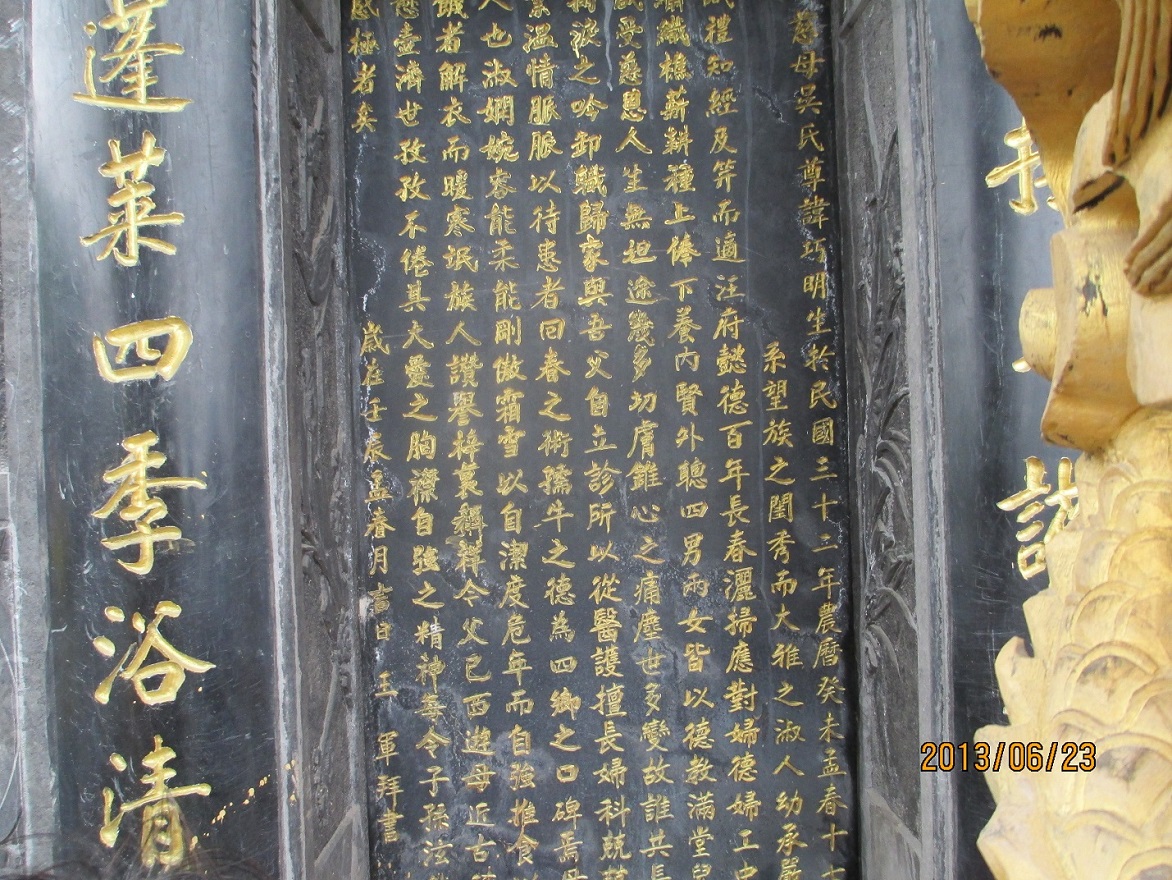 慈母吳氏尊諱巧明生於民國三十二年農曆癸未孟春十
系望族之閨秀而大雅之淑人幼承嚴
禮知經及笄而適汪府懿德百年長春灑掃應對婦德婦工中
織樵薪耕種上俸下養內賢外聰四男兩女皆以德教滿堂兒
受慈恩人生無坦途幾多切膚錐心之痛塵世多變故誰其長
之吟卸職歸家與吾父自立診所以從醫護擅長婦科兢
溫情脈脈以待患者回春之術孺牛之德為四鄉之口碑焉
人也淑嫻婉容能柔能剛傲霜雪以自潔度危年而自強推食
者解衣而暖寒氓族人讚譽梓裏稱祥今父已西遊母近古
壺濟世孜孜不倦其大愛之胸襟自強之精神每令子孫泫
感極者矣 歲在壬辰孟春月吉日王軍拜書
蓬萊四季浴清
2013/06/23